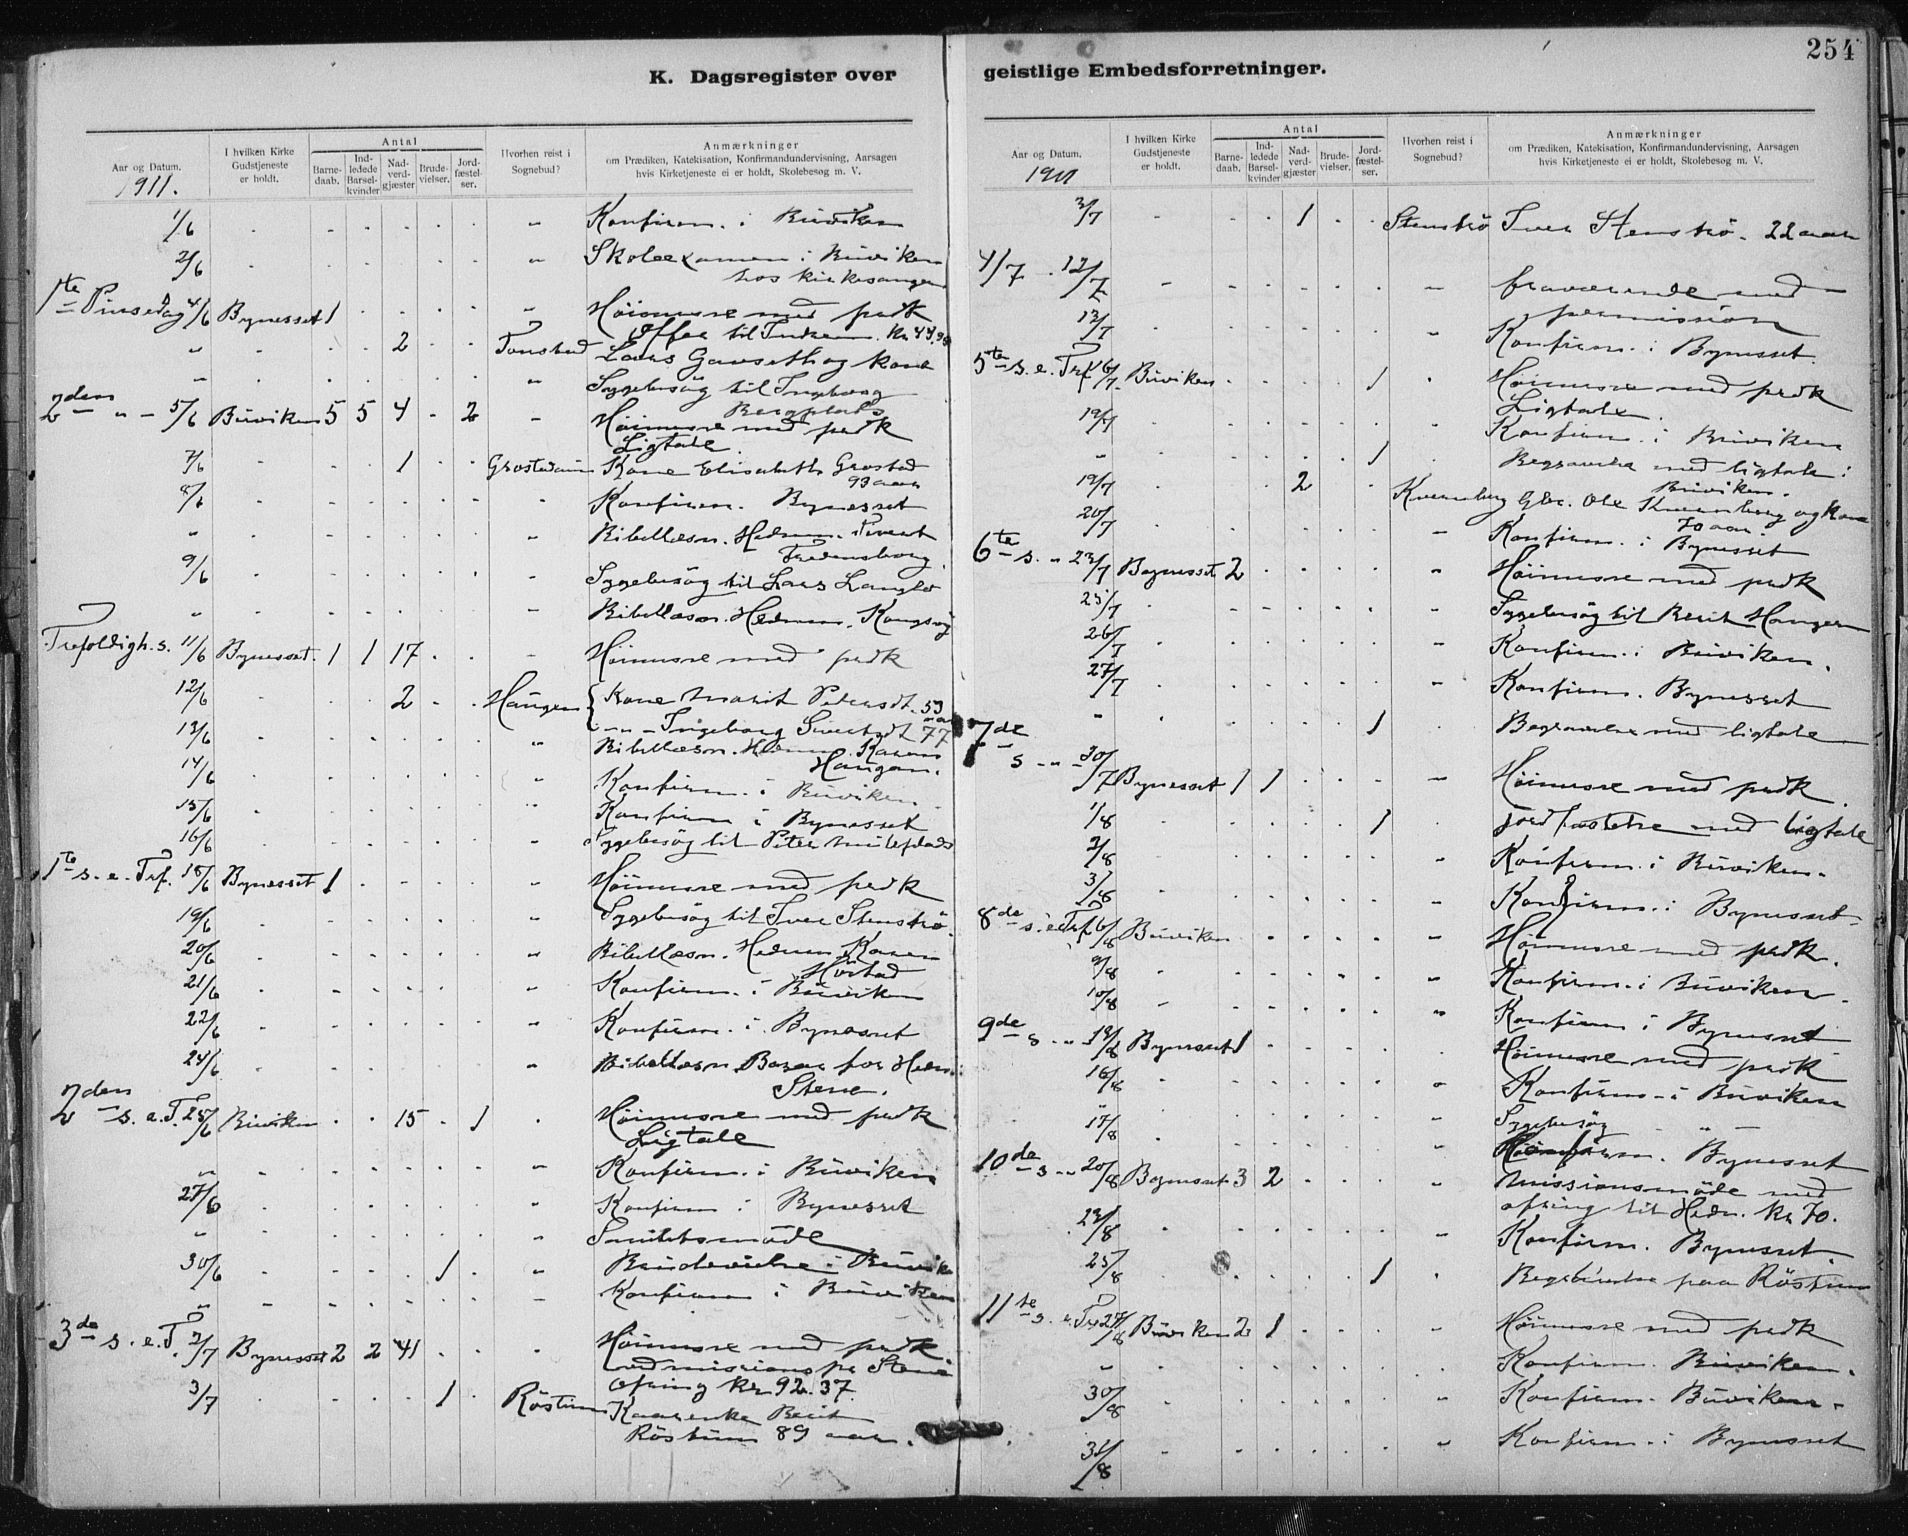 254
K. Dagsregister over geistlige Embedsforretninger.
Aar og Datum.
1911.
I hvilken Kirke Gudstjeneste er holdt.
Antal
Barnedaab.
Indledede Barselkvinder
Nadverdgjæster
Brudevielser.
Jordfæstelser.
Hvorhen reist i Sognebud?
Anmærkninger
om Prædiken, Katekisation, Konfirmandundervisning, Aarsagen
hvis Kirketjeneste ei er holdt, Skolebesøg m. V.
1/6 Konfirm. i Buviken
2/6 Skoleexamen i Buviken
hos kirkesanger
1te Pinsedag 4/6 Bynesset 1 Høimesse med prædk
Offer til Kr 44,90
" 2 Tonstad Lars Gaustad og kone
" Sygebesøg til Ingeborg
Bergplads
2den " 5/6 Buviken 5 5 4 - 2 Høimesse med prædk
Ligtale
7/6 1 Kone Elisabeth Grostad
93 aar
8/6 Konfirm. Bynesset
" Bibellæsn. Hedn.
9/6 Sygebesøg til Lars Langlo
" Bibellæsn. Hedn.
Trefoldigh. s. 11/6 Bynesset. 1 1 17 Høimesse med prædk
12/6 2 Haugen { Kone Marit Petersdt. 53 aar
" Ingeborg Sivertsdt 77
13/6 Bibellæsn. Hedn. Karen
Haugan.
14/6 Konfirm. i Buviken
15/6 Konfirm i Bynesset
16/6 Sygebesøg til Peter
1te s. e. Tref. 18/6 Bynesset 1 Høimesse med prædk
19/6 Sygebesøg til Iver Stenstrø.
20/6 Bibellæsn. Hedn. Karen
Hostad
21/6 Konfirm. i Buviken
22/6 Konfirm. i Bynesset
24/6 Bibellæsn. Basar for Hedn.
Stene.
2den s. e. T. 25/6 Buviken 15 1 Høimesse med prædk
Ligtale
" Konfirm. i Buviken
27/6 Konfirm i Bynesset
"
30/6 1 Brudevielse i Buviken
" Konfirm i Buviken
3de s. e. T. 2/7 Bynesset 2 2 41 Høimesse med prædk.
Ofring Kr. 92.37
3/7 1 Røstum Kaarenke Berit
Røstum 89 aar.
Aar og Datum.
1911
I hvilken Kirke Gudstjeneste er holdt.
Antal
Barnedaab.
Indledede Barselkvinder
Nadverdgjæster
Brudevielser.
Jordfæstelser.
Hvorhen reist i Sognebud?
Anmærkninger
om Prædiken, Katekisation, Konfirmandundervisning, Aarsagen
hvis Kirketjeneste ei er holdt, Skolebesøg m. V.
3/7 1 Stenstrø Iver Stenstrø. 22 aar
4/7 - 12/7 fraværende med
permission
13/7 Konfirm. i Bynesset.
5te s. e. Tref 16/7 Buviken 1 Høimesse med prædk
Ligtale.
19/7 Konfirm. i Buviken
" 1 Begravelse med ligtale i
Buviken.
19/7 2 Kvernberg Gbr. Ole Kvernberg og kone
70 aar
20/7 Konfirm. i Bynesset
6te s. " 23/7 Bynesset 2 Høimesse med prædk
25/7 Sygebesøg til Berit Haugen
26/7 Konfirm. i Buviken.
27/7 Konfirm. Bynesset
" 1 Begravelse med ligtale
7de s " 30/7 Bynesset 1 1 Høimesse med prædk.
1/8 1 Jordfæstelse med ligtale
2/8 Konfirm. i Buviken.
3/8 Konfirm. i Bynesset
8de s. e. Tref. 6/8 Buviken Høimesse med prædk.
9/8 Konfirm. i Buviken.
10/8 Konfirm. i Bynesset
9de s. " 13/8 Bynesset 1 Høimesse med prædk
16/8 Konfirm. i Buviken
" Sygebesøg
17/8 Konfirm. Bynesset
10de s " 20/8 Bynesset 3 2 Missionsmøde med
ofring til Hedn. Kr 70.
23/8 Konfirm. Bynesset.
25/8 1 Begravelse paa Røstum
11te s. e. Tr. 27/8 Buviken 2 1 Høimesse med prædk
" Konfirm. Buviken.
30/8 Konfirm. Buviken.
31/8 Konfirm. i Bynesset